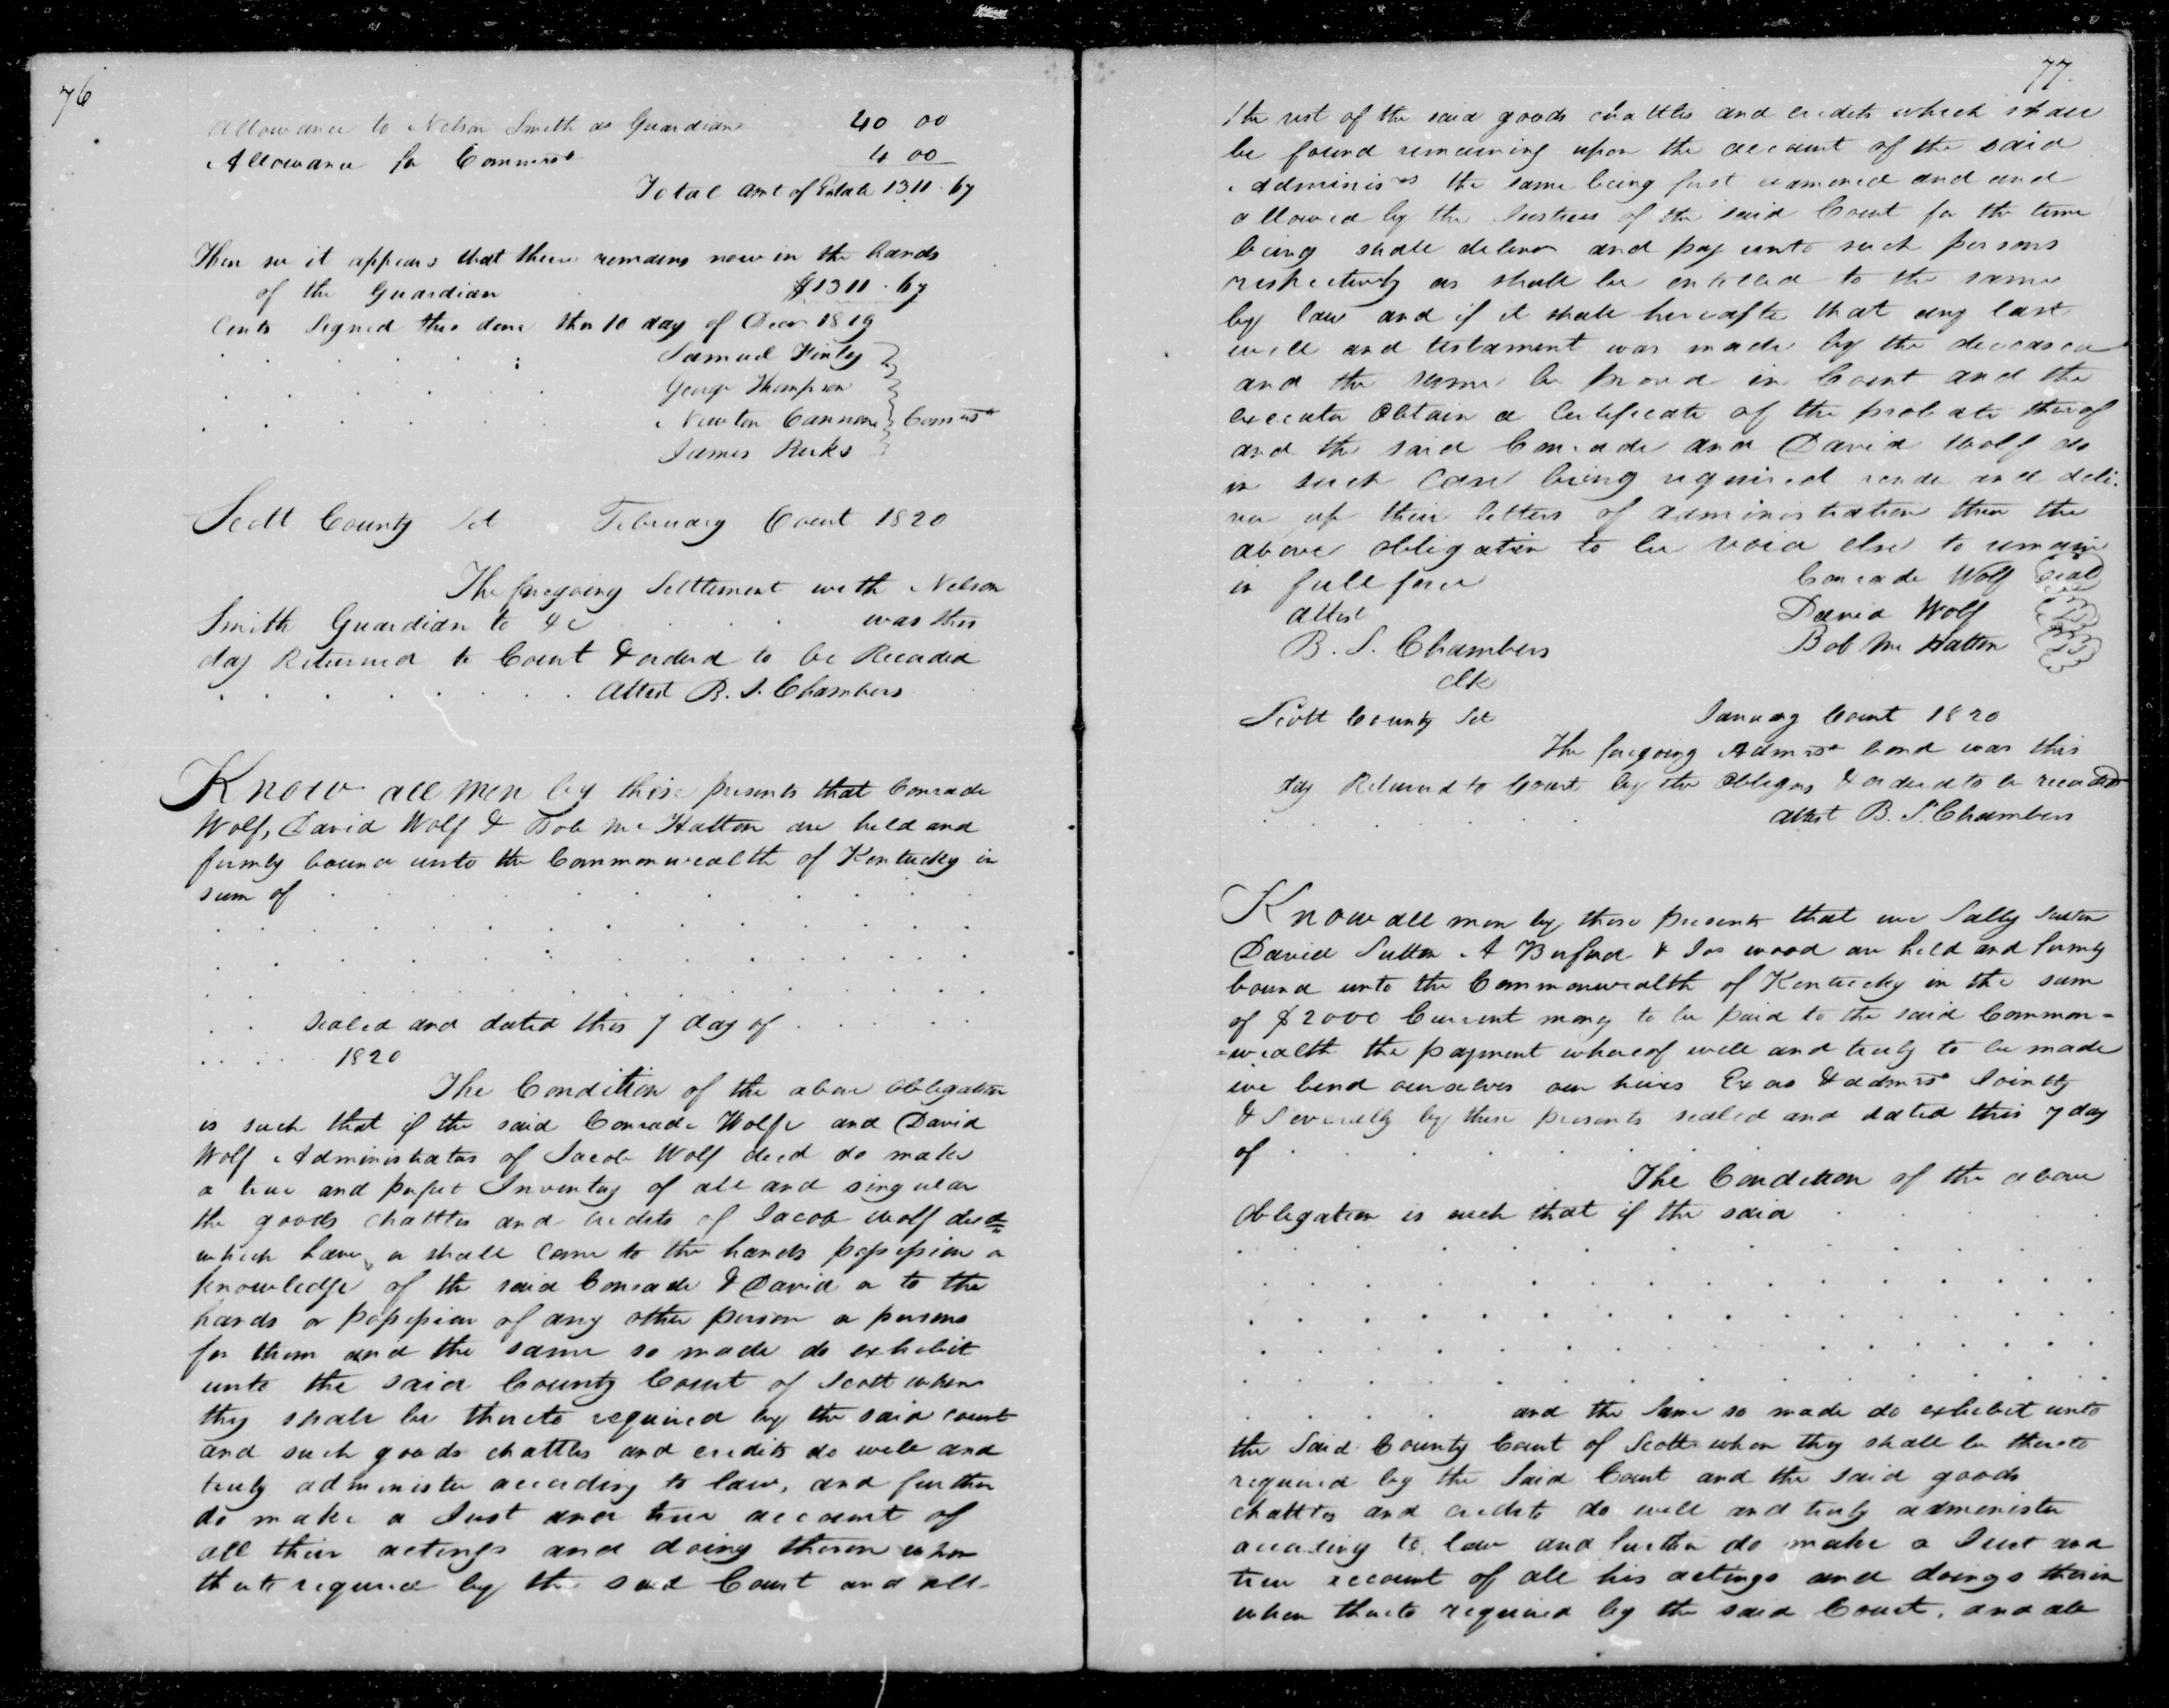 76
Allowance to Nelson Smith as Guardian 40 00
Allowance for Commrs 4 00
Total amt of Estate 1311.67
Then so it appears that there remains now in the hands
of the Guardian $1311.67
Cents Signed this done this 10 day of Decr 1819
Samuel Finley
George Thompson
Newton Cannon Commrs
James Parks
Scott County Sct February Court 1820
The foregoing Settlement with Nelson
Smith Guardian to &c was this
day Returned to Court & orderd to be Recorded
Attest B. S. Chambers
Know all men by these presents that Conrade
Wolf, David Wolf & Bob McHatton are held and
firmly bound unto the Commonwealth of Kentucky in
sum of
sealed and dated this 7 day of
1820
The Condition of the above obligation
is such that if the said Conrade Wolfe and David
Wolf Administrators of Jacob Wolf decd do make
a true and perfect Inventory of all and singular
the goods chattles and credits of Jacob Wolf decd
which have or shall come to the hands possession or
knowledge of the said Conrade & David or to the
hands or possession of any other person or persons
for them and the same so made do exhibit
unto the said County Court of Scott when
they shall be thereto required by the said court
and such goods chattles and credits do well and
truly administer according to law, and further
do make a Just and true account of
all their actings and doing therein when
thereto required by the said Court and all
77
the rest of the said goods chattles and credits which shall
be found remaining upon the account of the said
Adminisrs the same being first examined and and
allowed by the Justices of the said Court for the time
being shall deliver and pay unto such persons
respectively as shall be entitled to the same
by law and if it shall hereafter that any last
will and testament was made by the deceased
and the same be proved in Court and the
executor Obtain a Certificate of the probate thereof
and the said Conrade and David Wolf do
in such Case being required rende and deli-
ver up their letters of administration then the
above obligation to be void else to remain
in full force Conrade Wolf Seal
Attest David Wolf
B. S. Chambers Bob McHatton
clk
Scott County Sct January Court 1820
The foregoing Admrs bond was this
day Returned to Court by the Obligors & orderd to be recorded
Attest B. S. Chambers
Know all men by these presents that we Sally Sutton
David Sutton A Buford & Jos wood are held and firmly
bound unto the Commonwealth of Kentucky in the sum
of $2000 Current money to be paid to the said Common=
=wealth the payment whereof well and truly to be made
we bind ourselves our heirs Exors & admrs Jointly
& Severally by these presents sealed and dated this 7 day
of
The Condition of the above
obligation is such that if the said
and the same so made do exhibit unto
the Said County Court of Scott when they shall be thereto
required by the Said Court and the said goods
chattles and credits do well and truly administer
according to law and further do make a Just and
true account of all his actings and doings therein
when thereto required by the said Court. and all